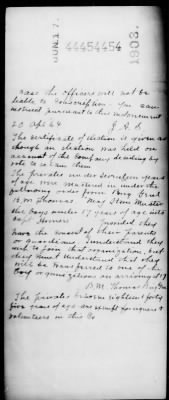 JUN. 17.
44454454
1903.
case the officers will not be
liable to Conscription. You can
instruct pursuant to this endorsement
20 Apl 64 J. A. S
The certificate of election is given as
though an election was held on
account of the Company deciding by
vote to claim them
The privates under seventeen years
of age were mustered in under the
following order from Brig Genl
B M Thomas "May 31 Muster
the boys under 17 years of age into
Capt provided they
have the consent of their parents
or guardians. I understand they
wish to join that organization, but
they must understand that they
will be transferred to one of the
Comp organizations on arriving at 17
B. M. Thomas Brig Gen
The privates between eighteen & forty
five years of age are exempt foreigners &
volunteers in this Co